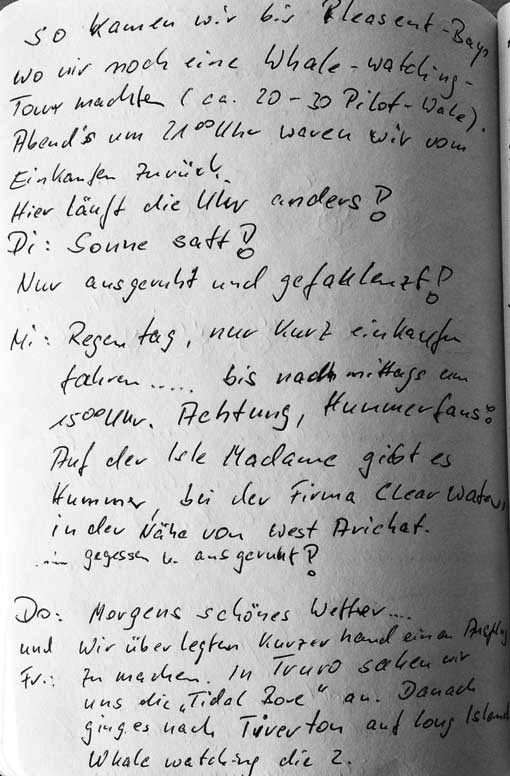 so kamen wir bis Pleasent-Bay,
wo wir noch eine Whale-watching-
Tour machten (ca. 20-30 Pilot-Wale).
Abend's um 21⁰⁰ Uhr waren wir vom
Einkaufen zurück.
Hier läuft die Uhr anders!
Di: Sonne satt!
Nur ausgeruht und gefaulenzt!
Mi: Regentag, nur kurz einkaufen
fahren..... bis nachmittags um
15⁰⁰ Uhr. Achtung, Hummerfans:
Auf der Isle Madame gibt es
Hummer, bei der Firma Clearwater,
in der Nähe von West Arichat.
... gegessen u. ausgeruht!
Do: Morgens schönes Wetter....
und wir überlegten kurzerhand einen Ausflug
Fr.: zu machen. In Truro sahen wir
uns die „Tidal Bore" an. Danach
ging es nach Tiverton auf Long Island
Whale watching die 2.